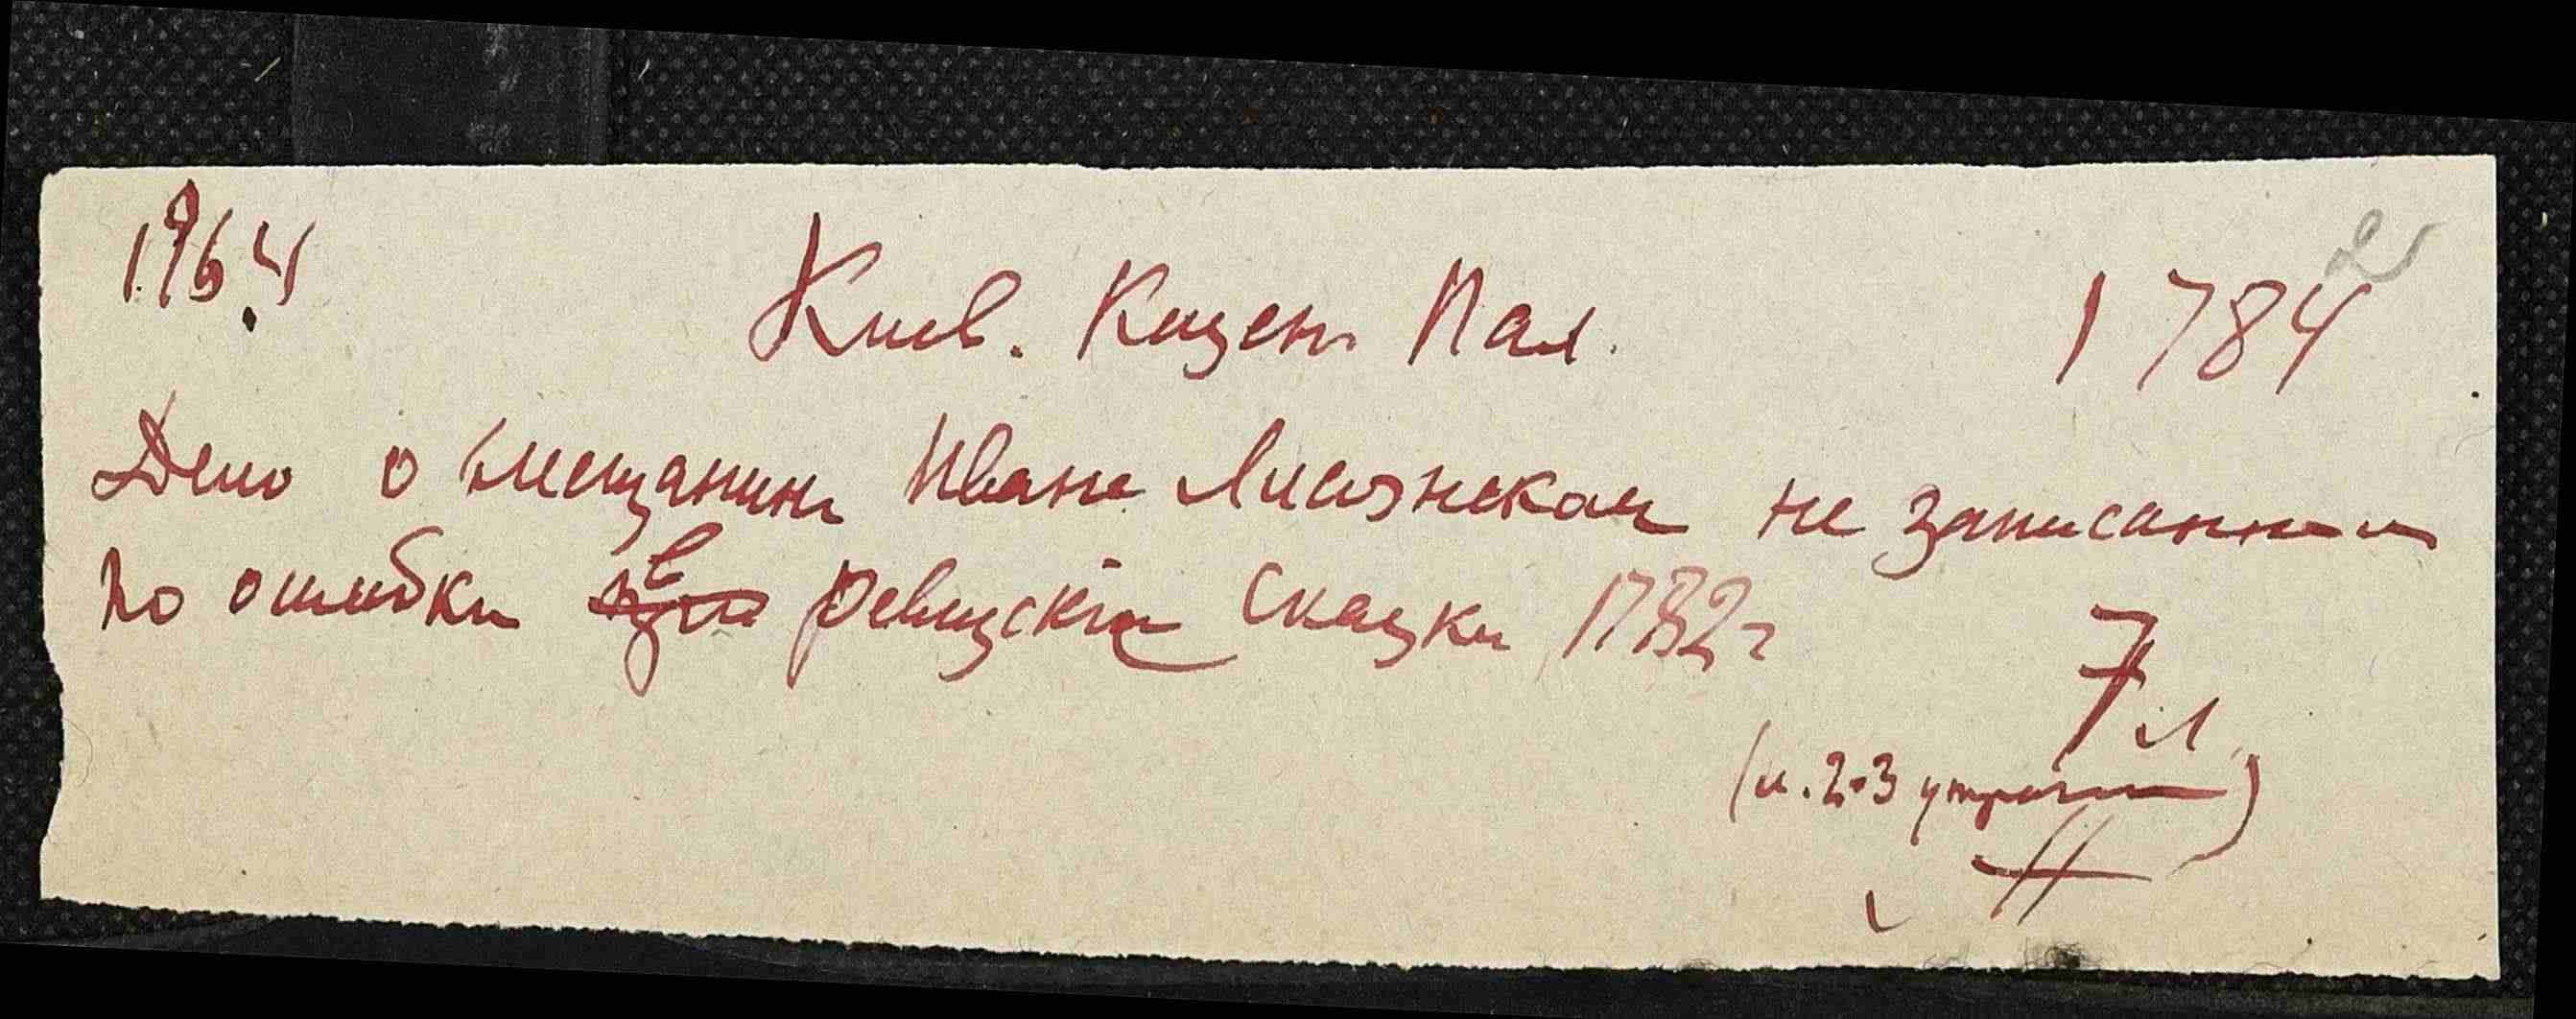 1964
2
Киев. Казен. Пал. 1784
Дело о мещанине Иване Лисянском не записанном
по ошибки в ревизские сказки 1782 г
7 л.
(л. 2-3 утрачены)